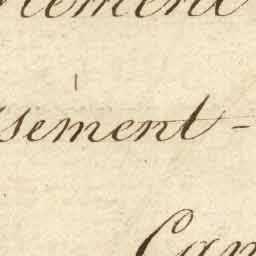 nement
sement -
Cam